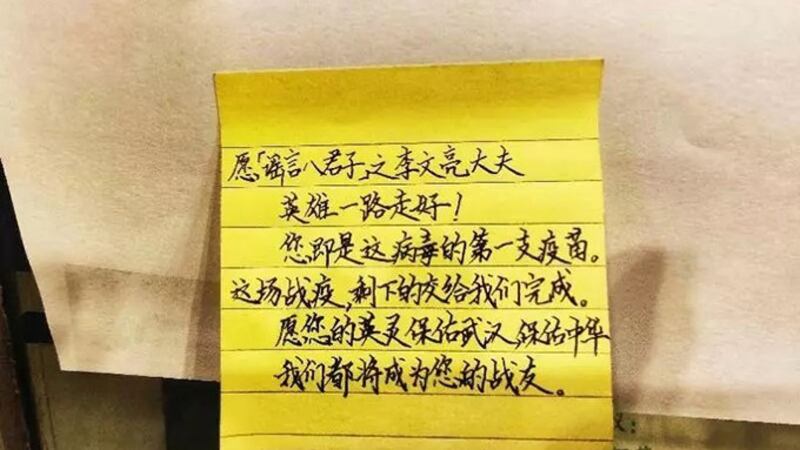 愿「谣言八君子」之李文亮大夫
英雄一路走好！
您即是这病毒的第一支疫苗。
这场战疫,剩下的交给我们完成。
愿您的英灵保佑武汉,保佑中华
我们都将成为您的战友。